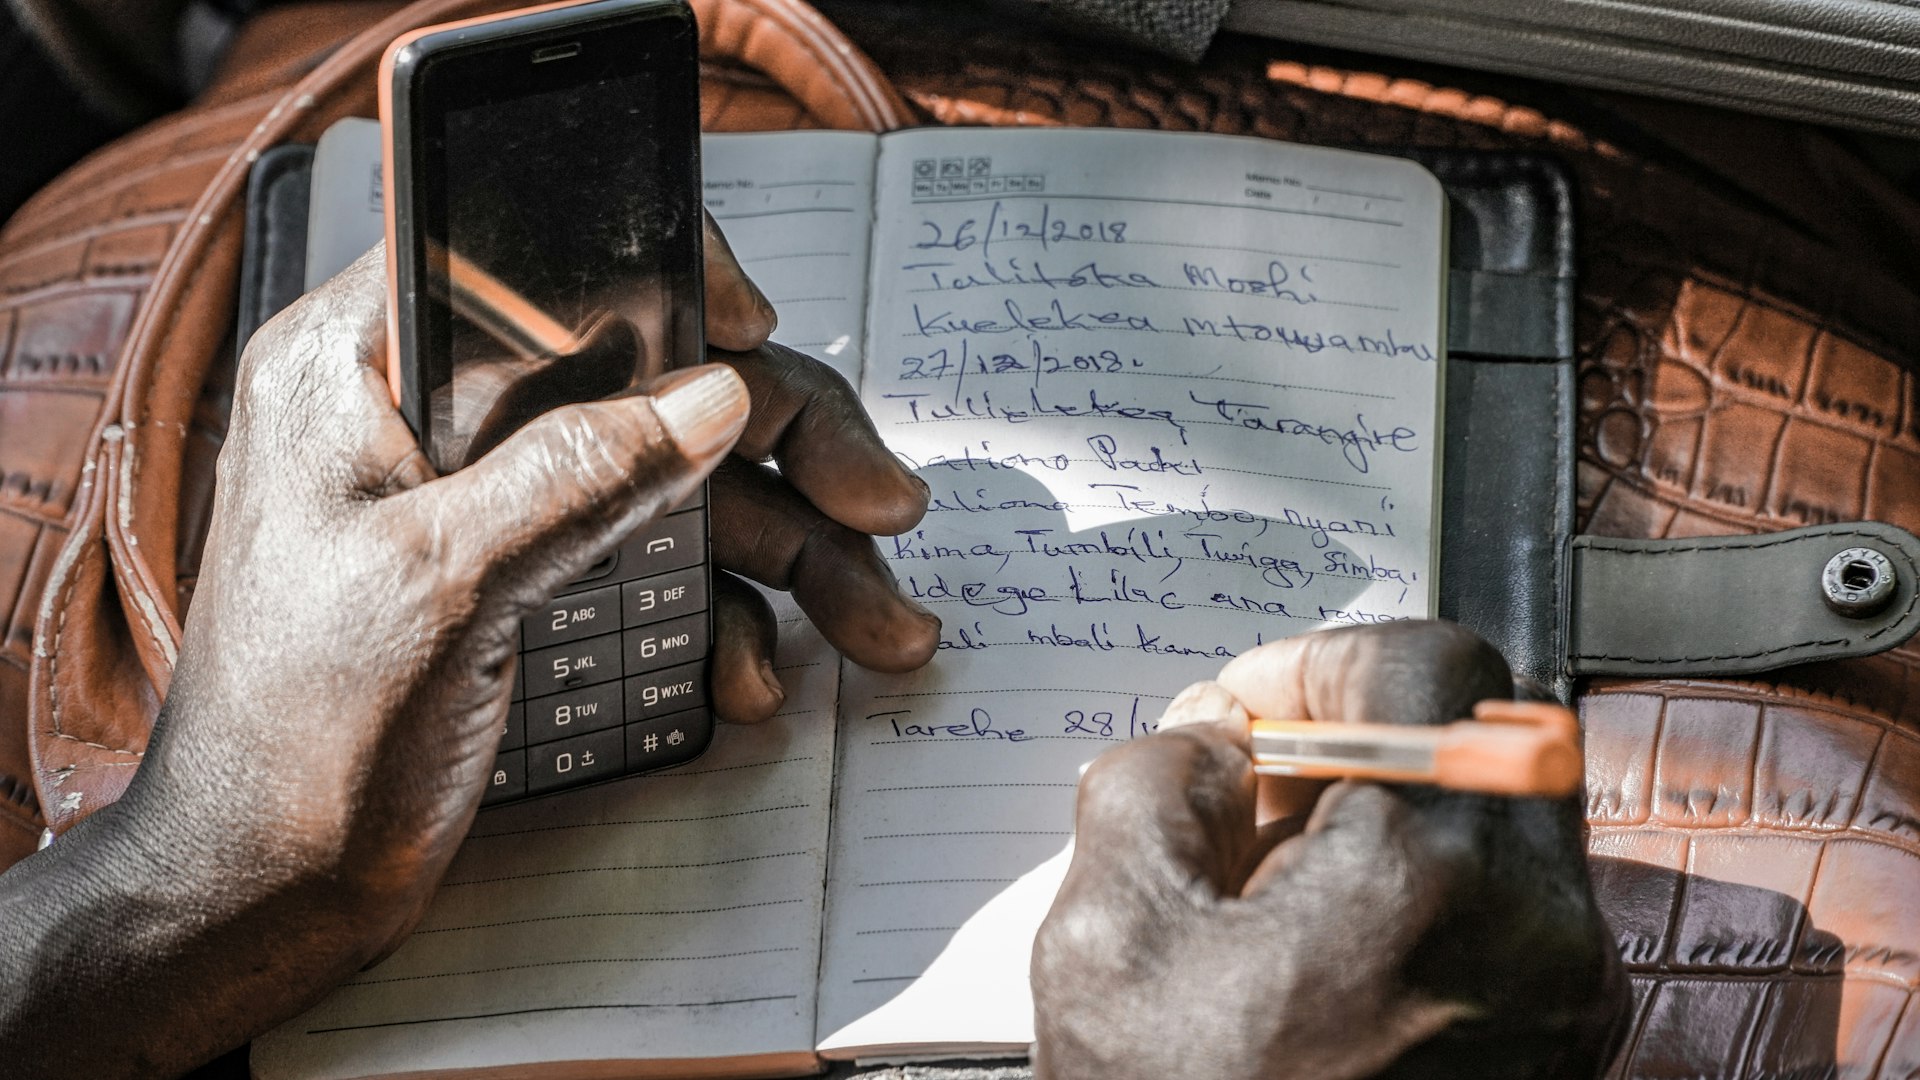 Memo No.
Date / /
Mo Tu We Th Fr Sa Su
Memo No.
Date / /
26/12/2018
Tulitoka Moshi
Kuelekea mtowyambu
27/12/2018.
Tulielekea Tarangire
Packi
Tembo, nyani
kima, Tumbili, Twiga, Simba,
Ldege Lilac ana rangi
mbali kama
Tarehe 28/1
2 ABC
3 DEF
5 JKL
6 MNO
8 TUV
9 WXYZ
0 ±
#